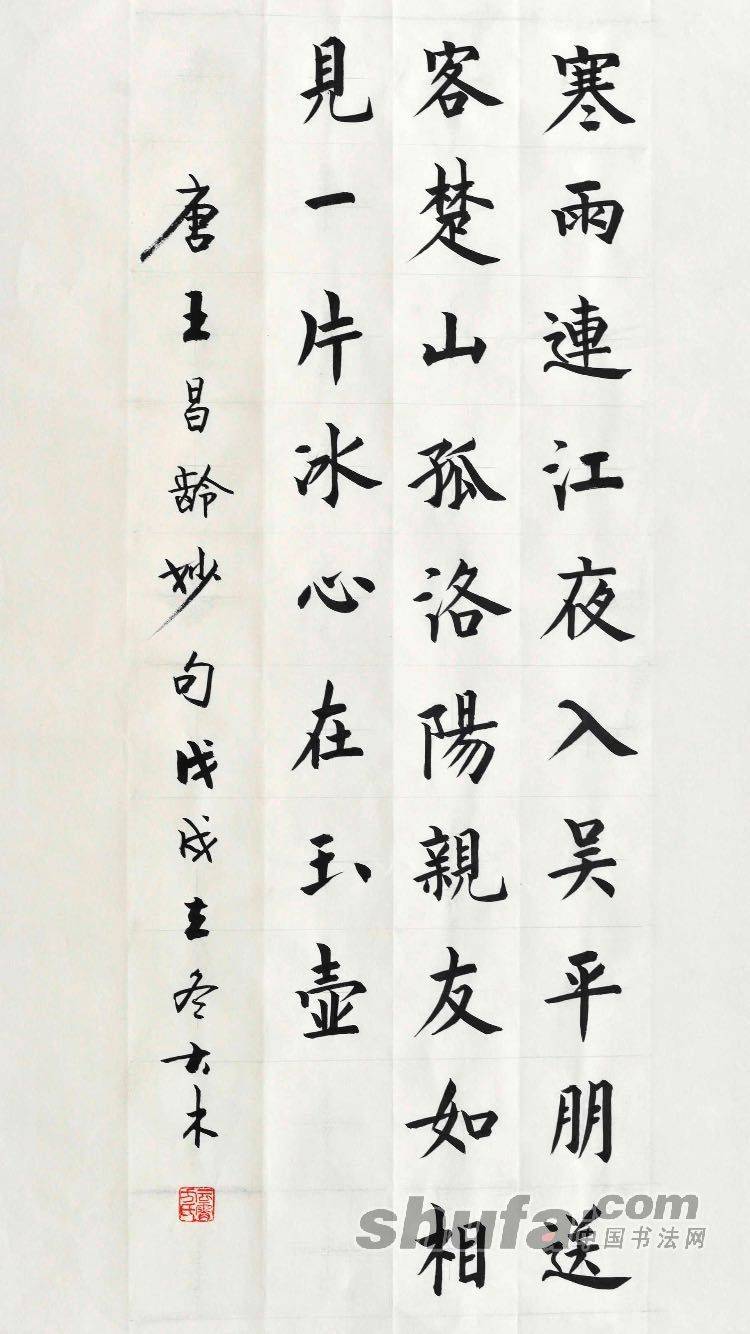 寒雨連江夜入吴平朋送
客楚山孤洛陽親友如相
見一片冰心在玉壺
唐王昌齡妙句戊戌立冬大木
shufa.com
中国书法网